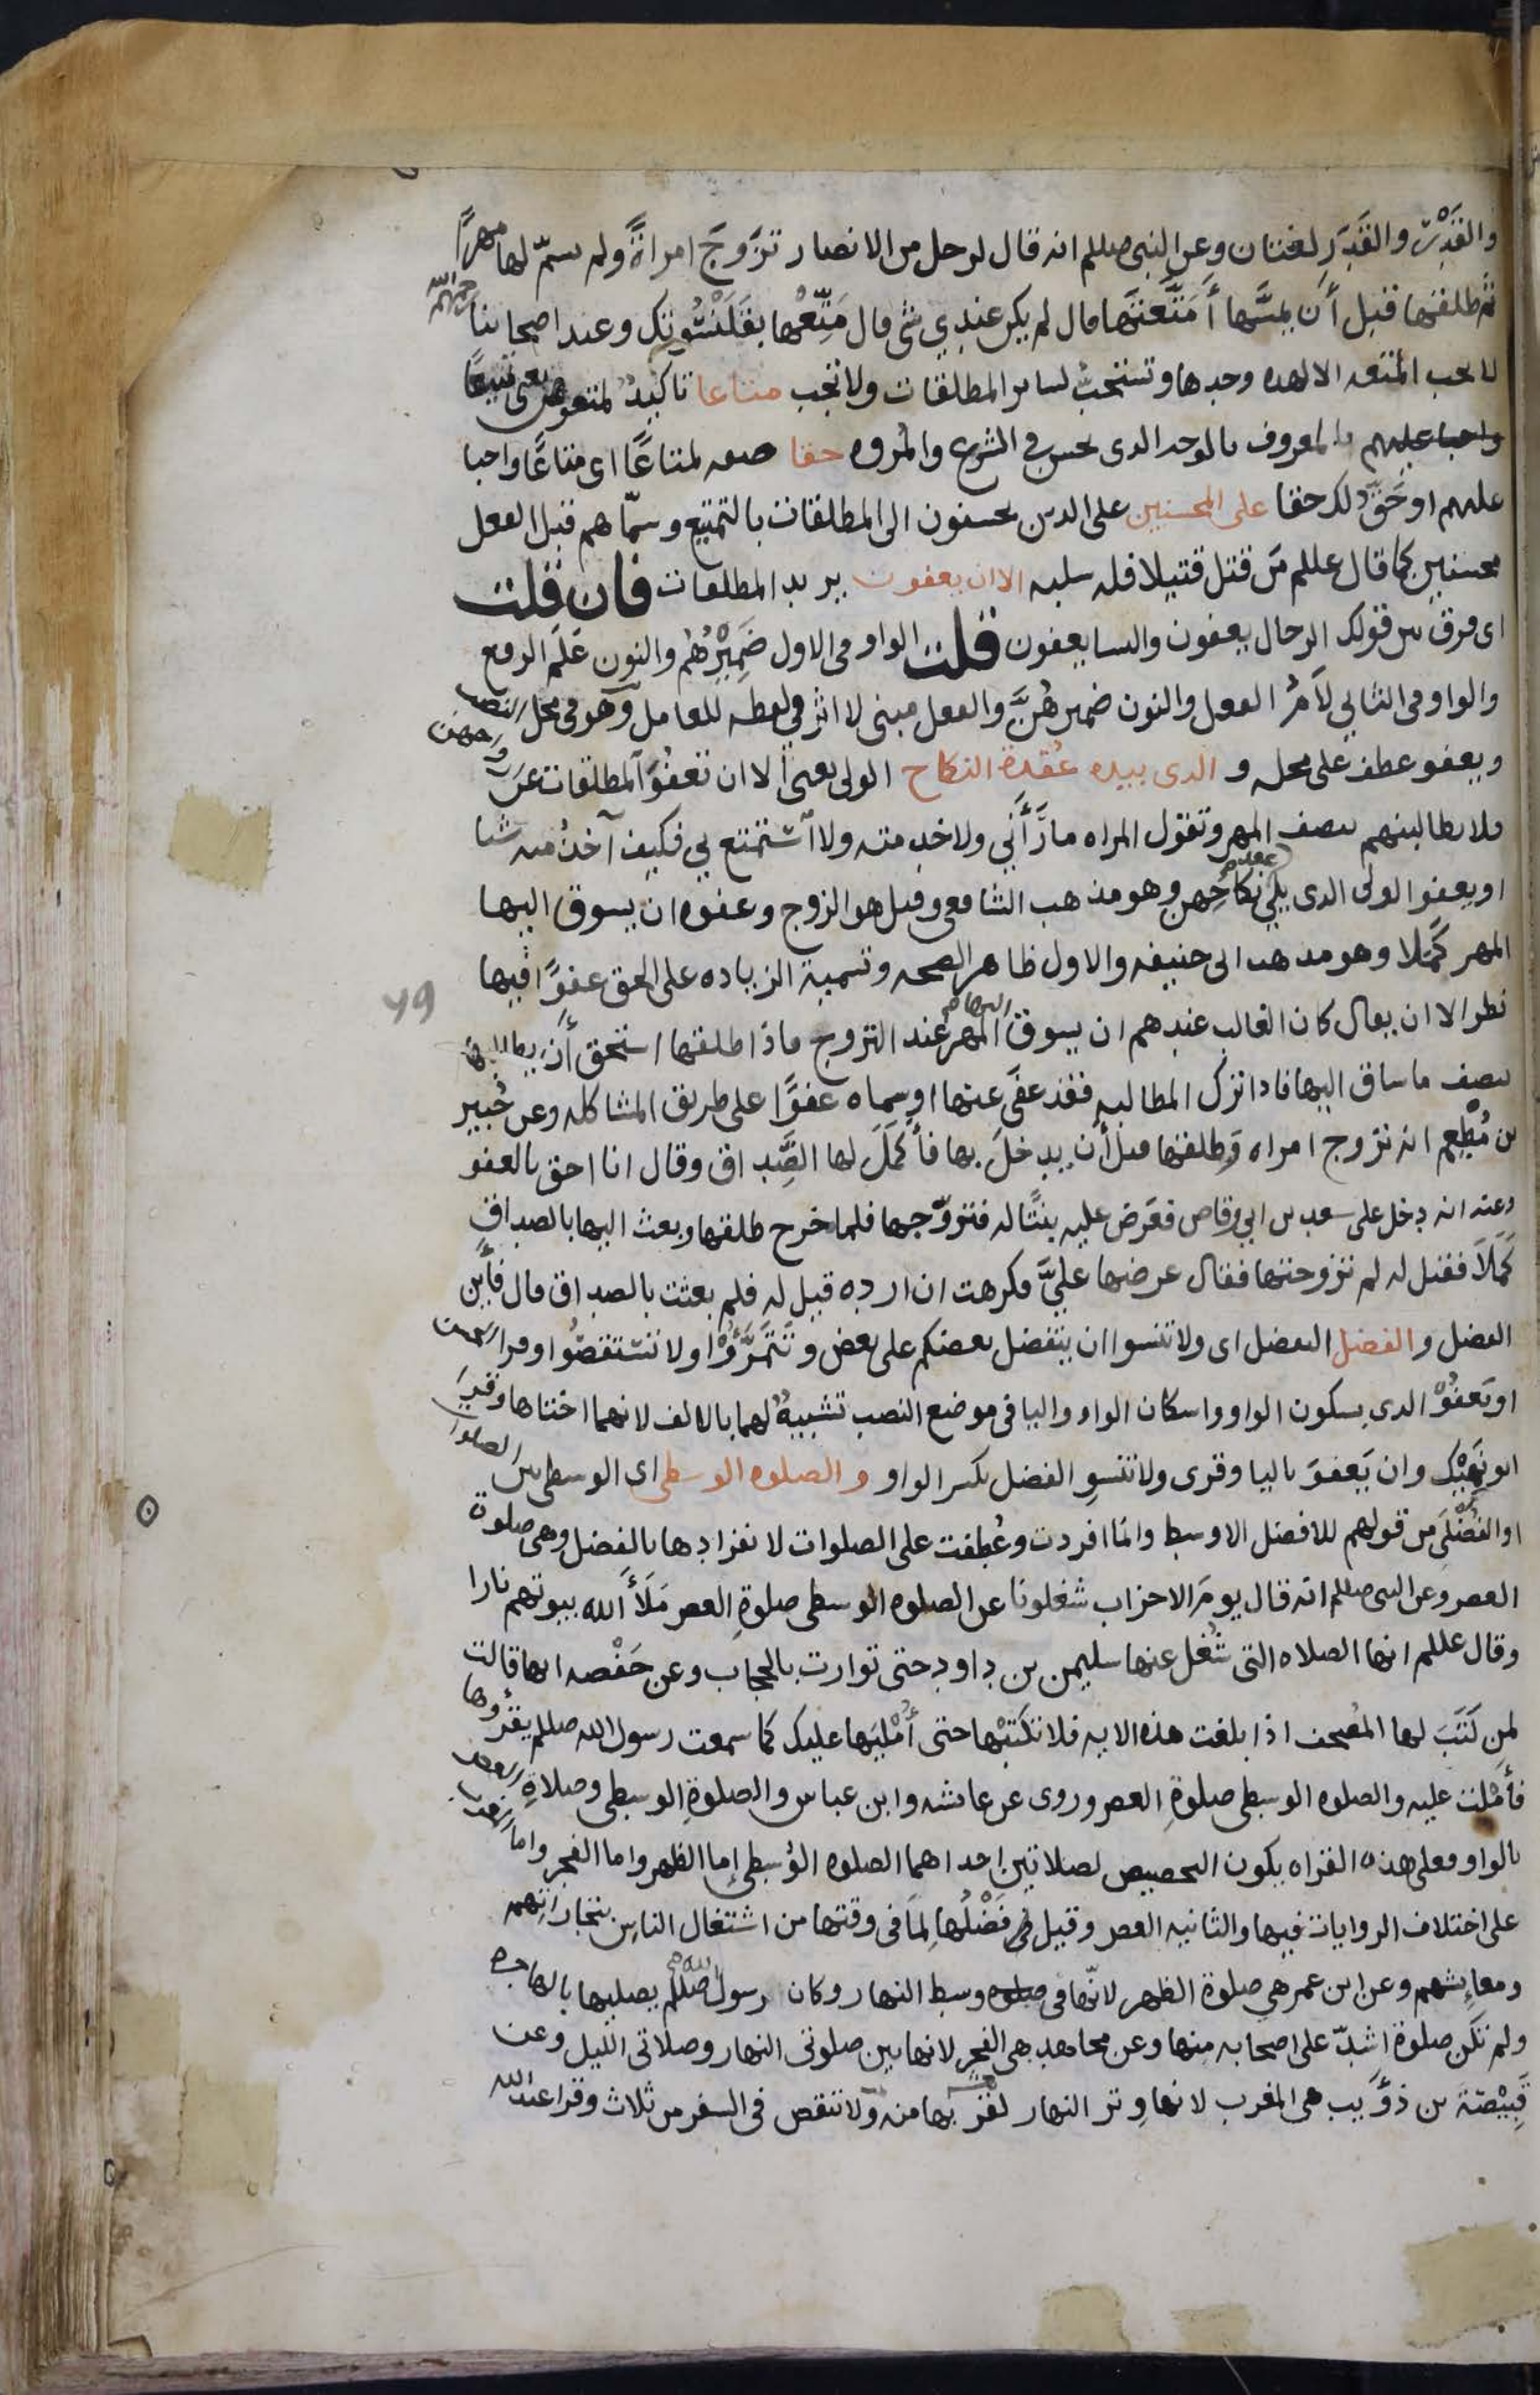 والقَدْر والقَدَر لغتان وعن النبى صللم انه قال لرجل من الانصار تزَوجَ امراةً ولم يسمّ لها مهرًا
ثم طلقها قبل أن يمسّها أمَتَّعْتَها قال لم يكن عندي شى قال مَتِّعْها بقَلَنْسُوتِك وعند اصحابنا رحمهم الله
لا يجب المتعه الا لهذه وحدها وتستحبّ لساير المطلقات ولا تجب متاعا تاكيدٌ لمتعوهن بمعنى تمتيعًا
واجبا عليهم بالمعروف بالوجه الدى يحسن في الشرع والمُروه حقا صفه لمتاعًا اى متاعًا واجبا
عليهم او حَقّ ذلك حقا على المحسنين على الدين يحسنون الى المطلقات بالتمتيع وسمّاهم قبل الفعل
محسنين كما قال عللم مَن قتل قتيلا فله سلبه الا ان يعفون يريد المطلقات فان قلت
اى فرق بين قولك الرجال يعفون والنسا يعفون قلت الواو فى الاول ضَمِيْرُهُم والنون عَلَم الرفع
والواو فى الثاني لَامُ الفعل والنون ضمير هُنَّ والفعل مبنى لا اثر في لفظه للعامل وهو فى محل النصب
ويعفو عطف على محله و الدى بيده عُقدة النكاح الولى يعنى الا ان تعفوَ المطلقات عن ازواجهن
فلا يطالبنهم بنصف المهر وتقول المراه ما رَأَني ولا خدمته ولا اسْتمتع بي فكيف آخذُ منه شيا
او يعفو الولى الدى يلي عقد نكاحهن وهو مذهب الشافعى وقيل هو الزوج وعفوه ان يسوق اليها
المهر كَمَلا وهو مدهب ابى حنيفه والاول ظاهر الصحه وتسمية الزياده على الحق عفوًا فيها
نظر الا ان يقال كان الغالب عندهم ان يسوق اليها المهر عند التزوج فاذا طلقها استحق أن يطالبها
بنصف ما ساق اليها فاذا ترك المطالبه فقد عفى عنها او سماه عفوًا على طريق المشاكله وعن جُبير
بن مُطعِم انه تزوج امراه وطلقها قبل أن يدخلَ بها فأكمَلَ لها الصَّداق وقال انا احق بالعفو
وعنه انه دخل على سعد بن ابي وقاص فعَرَض عليه بنتًا له فتزوّجها فلما خرج طلقها وبعث اليها بالصداق
كَمَلًا فقيل له لم تزوجتها فقال عرضها علىَّ فكرهت ان ارده قيل له فلم بعثت بالصداق قال فأين
الفضل و الفضل التفضل اى ولا تنسوا ان يتفضل بعضكم على بعض وتَتَمَرَّؤُا ولا تستقصُوا وقرا الحسن
او يَعفوْ الدى بسكون الواو واسكان الواو واليا فى موضع النصب تشبيهٌ لهما بالالف لانهما اختاها وقرا
ابو نَهِيْك وان يَعفوَ باليا وقرى ولا تنسوِ الفضل بكسر الواو و الصلوه الوسطى اى الوسطى بين الصلوات
او الفُضْلَى من قولهم للافضل الاوسط وانما افردت وعُطفت على الصلوات لانفرادها بالفضل وهى صلوة
العصر وعن النبى صللم انه قال يومَ الاحزاب شغلونا عن الصلوه الوسطى صلوةِ العصر مَلَأَ الله بيوتهم نارا
وقال عللم انها الصلاه التى شُغل عنها سليمن بن داود حتى توارت بالحجاب وعن حَفْصه انها قالت
لمن كَتَبَ لها المُصحف اذا بلغت هذه الايه فلا تكتبْها حتى أُمْلِيَها عليك كما سمعت رسول الله صللم يقرؤها
فأمْلَت عليه والصلوه الوسطى صلوةِ العصر وروى عن عايشه وابن عباس والصلوةِ الوسطى وصلاةِ العصر
بالواو فعلى هذه القراه يكون التخصيص لصلاتين احداهما الصلوه الوُسطى إما الظهر واما الفجر واما المغرب
على اختلاف الروايات فيها والثانيه العصر وقيل فَضْلُها لِمَا فى وقتها من اشتغال الناس بتجاراتهم
ومعايشهم وعن ابن عمر هي صلوة الظهر لانّها فى وسط النهار وكان رسول الله صللم يصليها بالهاجره
ولم تكن صلوة اشدّ على اصحابه منها وعن مجاهد هى الفجر لانها بين صلوتى النهار وصلاتى الليل وعن
قَبِيْصَة بن ذؤَيب هى المغرب لانها وِتر النهار ولا تنقص فى السفر من ثلاث وقرا عبد الله
٧٩